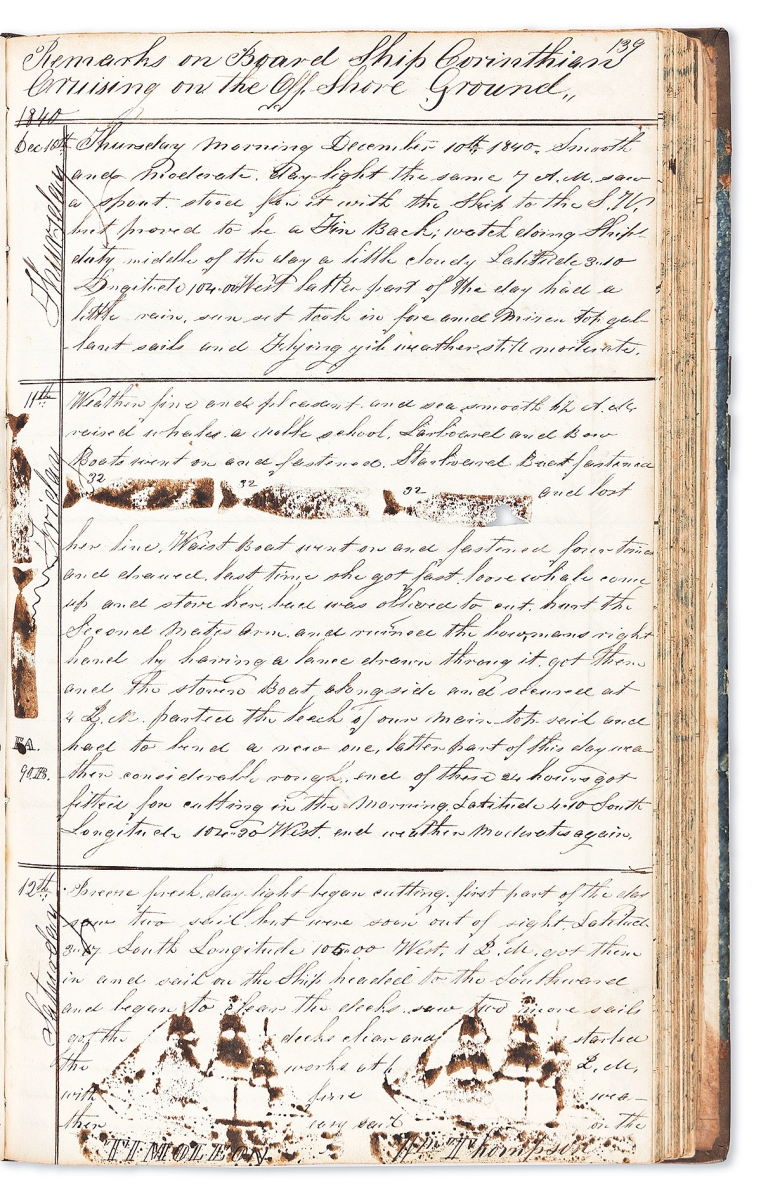 139
Remarks on Board Ship Corinthian
Cruising on the Off Shore Ground,,
1840
Dec 10th Thursday morning December 10th 1840. Smooth
and moderate. day light the same 7 A.M. saw
a spout stood for it with the Ship to the S.W.
but proved to be a Fin Back; watch doing Ships
duty middle of the day a little cloudy Latitude 3..10
Longitude 104..00 West latter part of the day had a
little rain, sun set took in fore and Mizen top gal-
lant sails and Flying gib weather still moderate.
Thursday
11th
Weather fine and pleasant. and sea smooth A.M.
raised whales. a school. Larboard and Bow
Boats went on and fastened. Starboard Boat fastened
32 32 32 and lost
her line. Waist Boat went on and fastened four times
and drawed. last time she got fast. loose whale come
up and stove her. bad was oblived to cut. hurt the
Second Mates Arm. and ruined the bowmans right
hand by having a lance drawn throug it. got them
and the stoven Boat alongside and secured at
4 P.M. parted the leech of our main top sail and
had to bend a new one, latter part of this day wea-
ther considerable rough. end of these 24 hours got
fitted for cutting in the Morning, Latitude 4..10 South
Longitude 104..30 West. end weather Moderates again.
Friday
90 B.
12th
Breeze fresh. day light began cutting. first part of the day
saw two sail but were soon out of sight. Latitude
South Longitude 105..00 West. 1 P.M. got them
in and sail on the Ship headed to the Southward
and began to clear the decks. saw two more sails
got the decks clear and started
the works at P.M.
with fine wea-
ther sail on the
Saturday
TIMOLEON
Wm Thompson